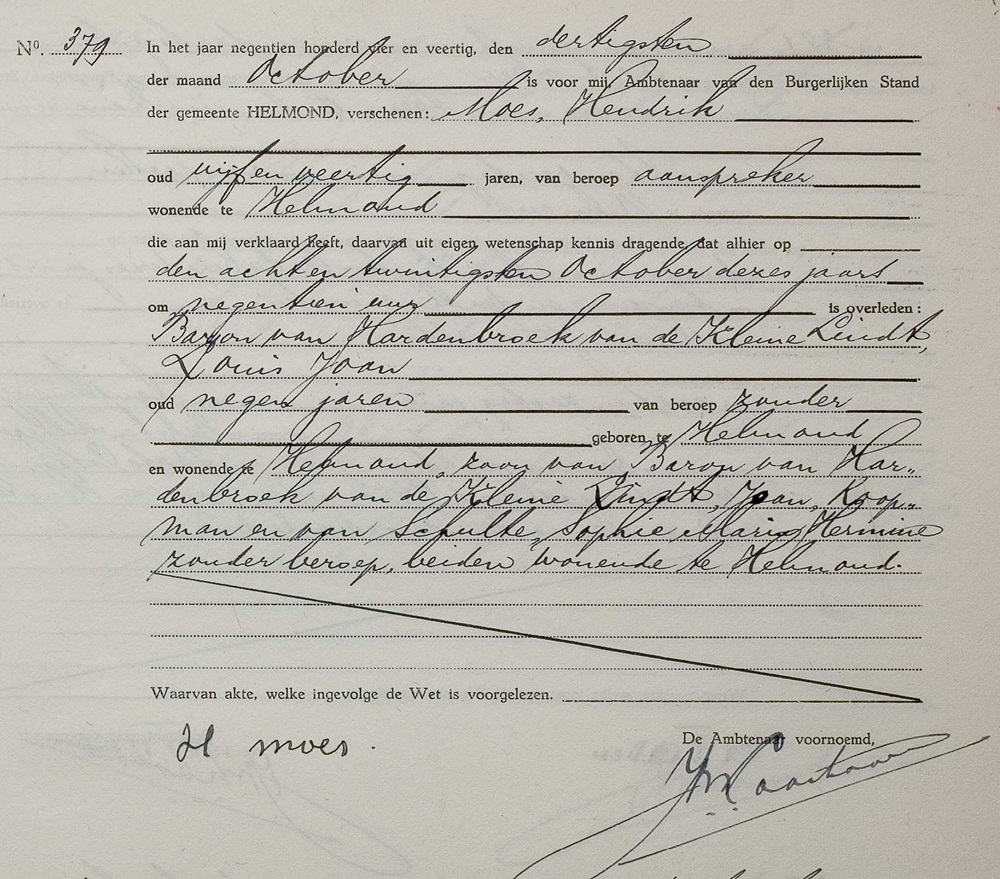 No. 379 In het jaar negentien honderd vier en veertig, den dertigsten
der maand October is voor mij, Ambtenaar van den Burgerlijken Stand
der gemeente HELMOND, verschenen: Moes, Hendrik
oud vijf en veertig jaren, van beroep aanspreker
wonende te Helmond
die aan mij verklaard heeft, daarvan uit eigen wetenschap kennis dragende, dat alhier op
den acht en twintigsten October dezes jaars
om negentien uur is overleden:
Baron van Hardenbroek van de Kleine Lindt,
Louis Joan
oud negen jaren van beroep zonder
geboren te Helmond
en wonende te Helmond, zoon van Baron van Har„
denbroek van de Kleine Lindt, Joan, Koop„
man en van Schulte, Sophie Maria Hermine
zonder beroep, beiden wonende te Helmond.
Waarvan akte, welke ingevolge de Wet is voorgelezen.
H moes.
De Ambtenaar voornoemd,